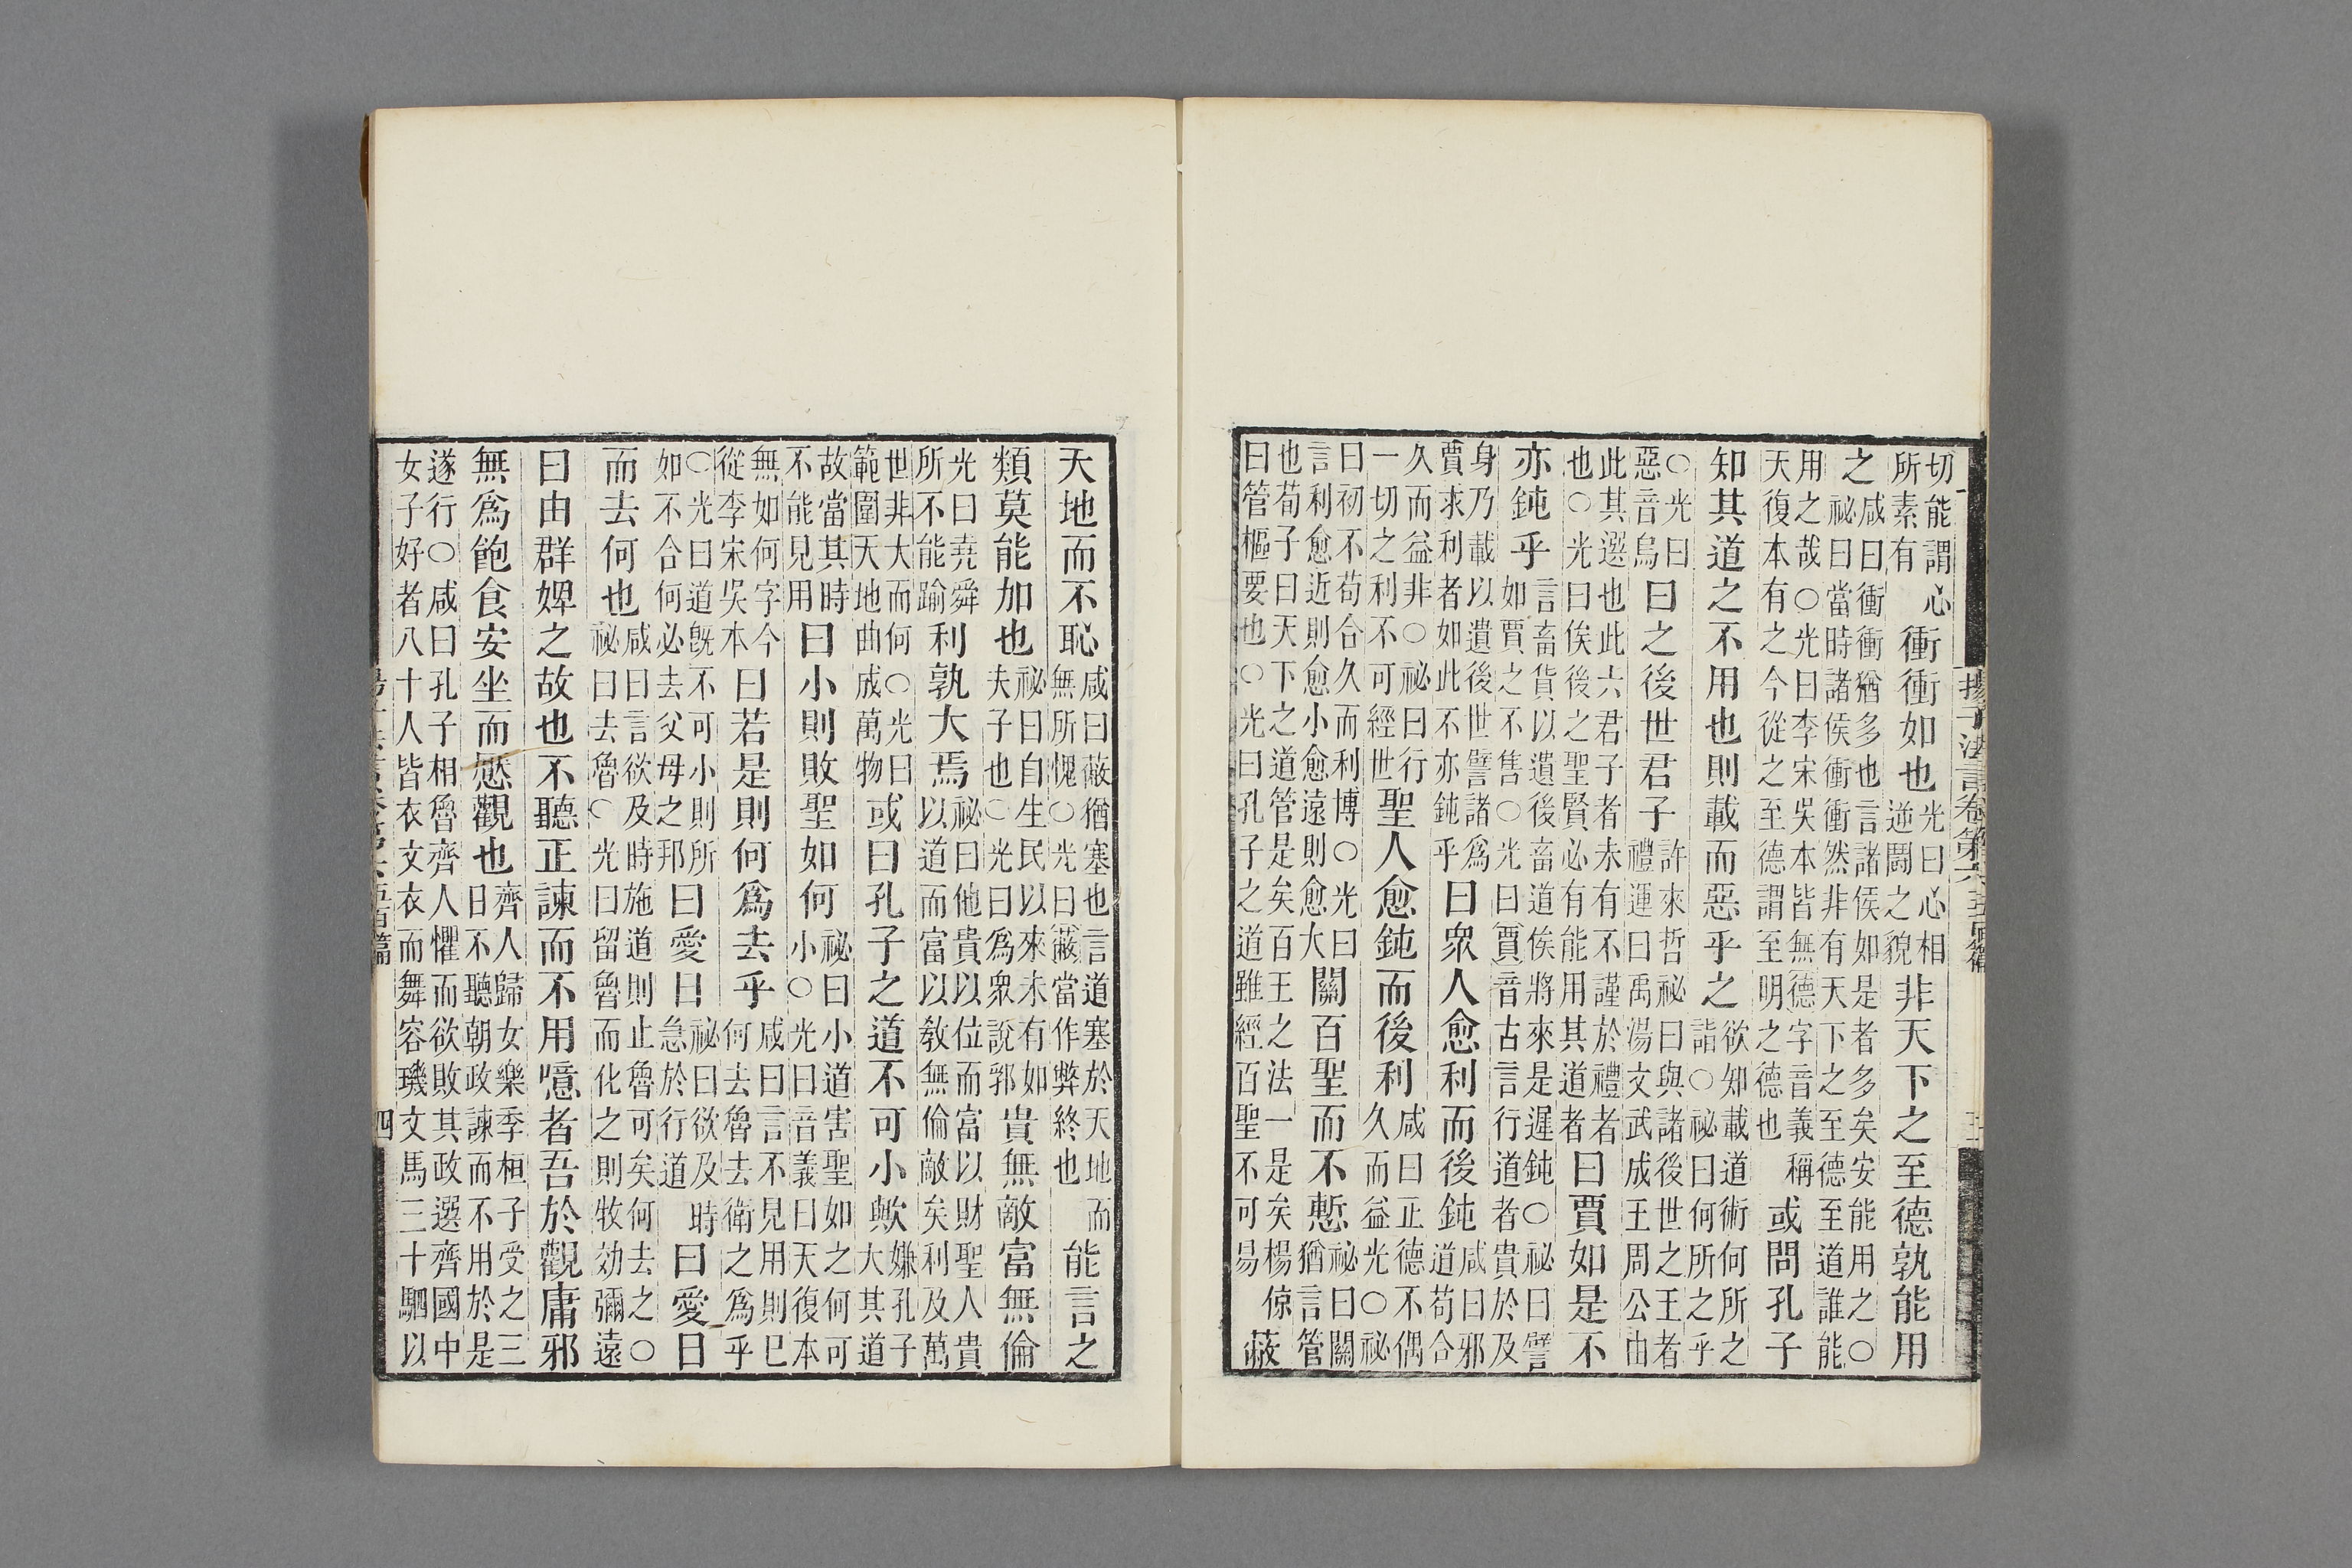 揚子法言卷第六五百篇
切能謂心所素有衝衝如也光曰心相逆鬬之貌非天下之至德孰能用
之咸曰衝衝猶多也言諸侯如是者多矣安能用之○祕曰當時諸侯衝衝然非有天下之至德至道誰能
用之哉○光曰李宋吳本皆無德字音義稱天復本有之今從之至德謂至明之德也或問孔子
知其道之不用也則載而惡乎之欲知載道術何所之詣○祕曰何所之乎
○光曰惡音烏曰之後世君子許來哲祕曰與諸後世之王者禮運曰禹湯文武成王周公由
此其選也此六君子者未有不謹於禮者也○光曰俟後之聖賢必有能用其道者曰賈如是不
亦鈍乎言畜貨以遺後畜道俟將來是遲鈍○祕曰譬如賈之不售○光曰賈音古言行道者貴於及
身乃載以遺後世譬諸爲賈求利者如此不亦鈍乎曰眾人愈利而後鈍咸曰邪道苟合
久而益非○祕曰行一切之利不可經世聖人愈鈍而後利咸曰正德不偶久而益光○祕
曰初不苟合久而利博○光曰言利愈近則愈小愈遠則愈大關百聖而不慙祕曰關猶言管
也荀子曰天下之道管是矣百王之法一是矣楊倞曰管樞要也○光曰孔子之道雖經百聖不可易蔽
天地而不恥咸曰蔽猶塞也言道塞於天地而無所愧○光曰蔽當作弊終也能言之
類莫能加也祕曰自生民以來未有如夫子也○光曰爲眾說郛貴無敵富無倫
光曰堯舜所不能踰利孰大焉祕曰他貴以位而富以財聖人貴以道而富以教無倫敵矣利及萬
世非大而何○光曰範圍天地曲成萬物或曰孔子之道不可小歟嫌孔子大其道
故當其時不能見用曰小則敗聖如何祕曰小道害聖如之何可小○光曰音義曰天復本
無如何字今從李宋吳本曰若是則何爲去乎咸曰言不見用則已何去魯去衛之爲乎
○光曰道旣不可小則所如不合何必去父母之邦曰愛日祕曰欲及時急於行道曰愛日
而去何也咸曰言欲及時施道則止魯可矣何去之○祕曰去魯○光曰留魯而化之則牧効彌遠
曰由群婢之故也不聽正諫而不用噫者吾於觀庸邪
無爲飽食安坐而懕觀也齊人歸女樂季桓子受之三日不聽朝政諫而不用於是
遂行○咸曰孔子相魯齊人懼而欲敗其政選齊國中女子好者八十人皆衣文衣而舞容璣文馬三十駟以
四